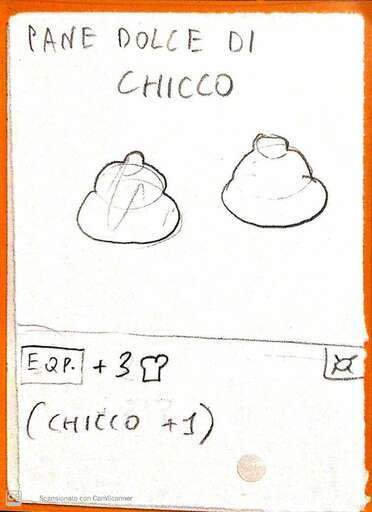 PANE DOLCE DI
CHICCO
EQP. +3
(CHICCO +1)
Scansionato con CamScanner